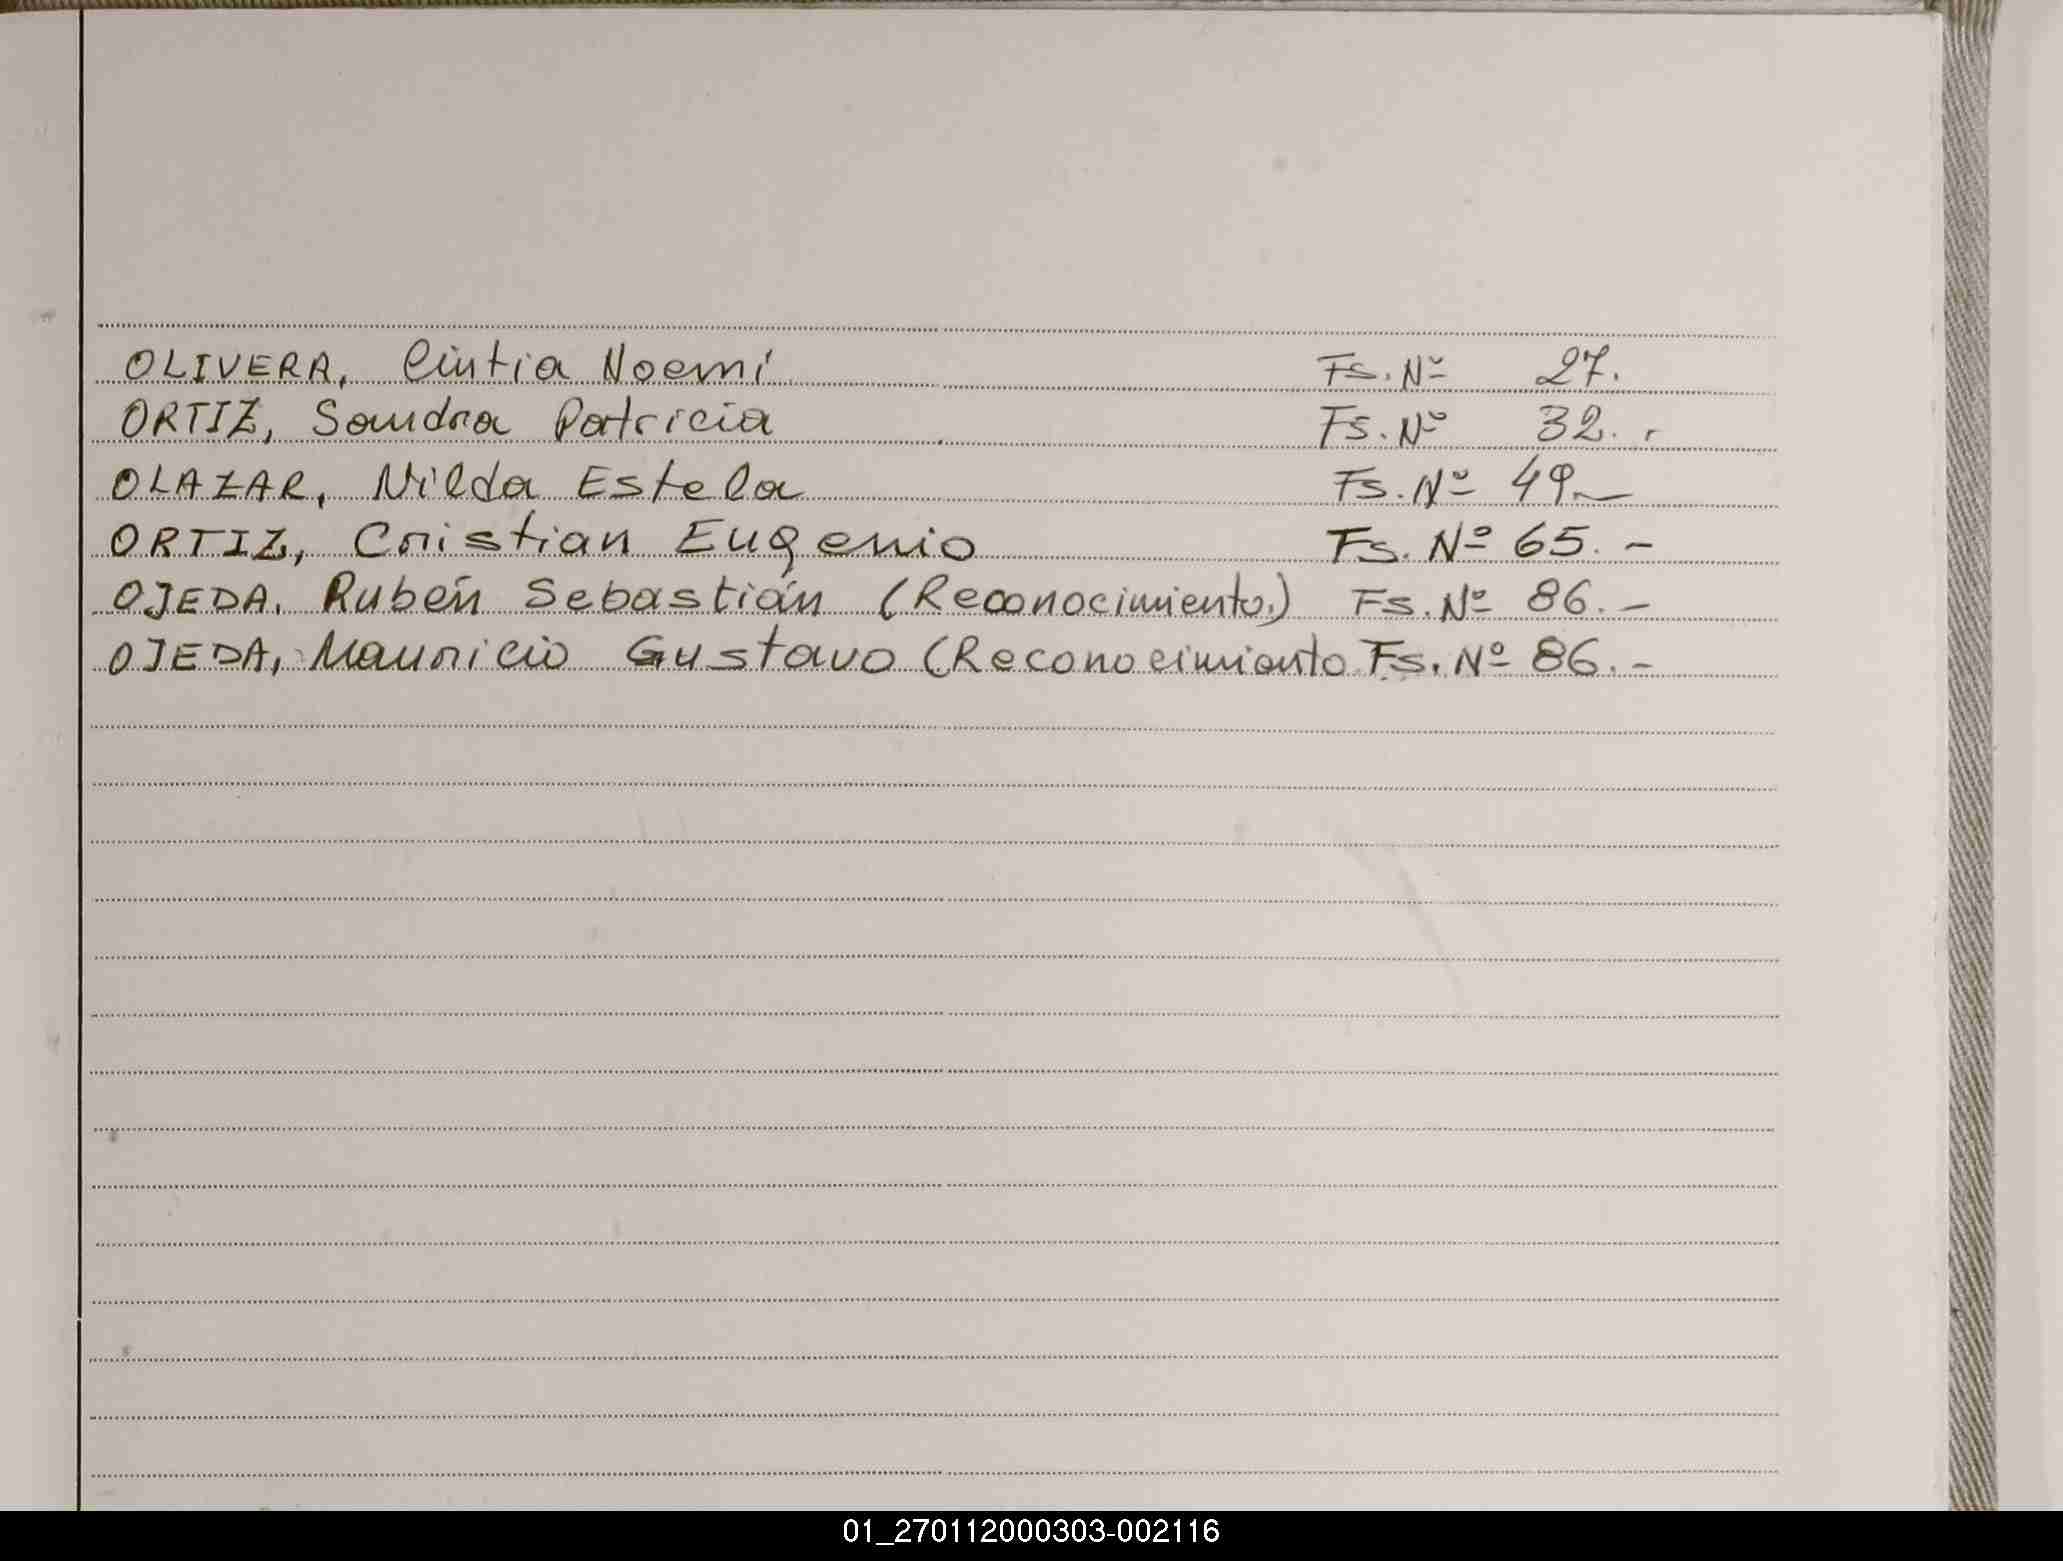 OLIVERA, Cintia Noemí Fs. Nº 27.
ORTIZ, Sandra Patricia Fs. Nº 32. .
OLAZAR, Nilda Estela Fs. Nº 49.—
ORTIZ, Cristian Eugenio Fs. Nº 65. -
OJEDA, Rubén Sebastián (Reconocimiento.) Fs. Nº 86. -
OJEDA, Mauricio Gustavo (Reconocimiento Fs. Nº 86. -
01_270112000303-002116